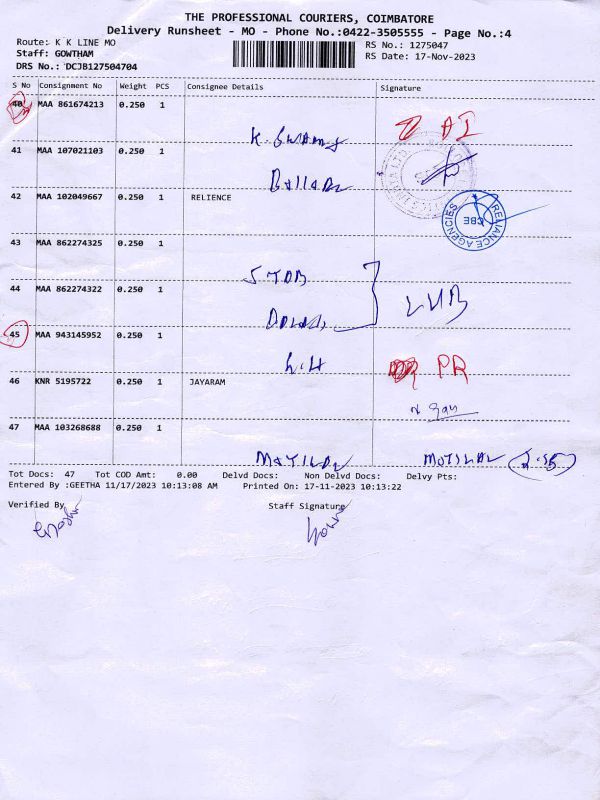 THE PROFESSIONAL COURIERS, COIMBATORE
Delivery Runsheet - MO - Phone No.:0422-3505555 - Page No.:4
Route: K K LINE MO
RS No.: 1275047
Staff: GOWTHAM
RS Date: 17-Nov-2023
DRS No.: DCJB127504704
S No Consignment No Weight PCS Consignee Details Signature
40 MAA 861674213 0.250 1
K. Swamy AI
41 MAA 107021103 0.250 1
42 MAA 102049667 0.250 1 RELIENCE
RELIANCE AGENCIES CBE
43 MAA 862274325 0.250 1
44 MAA 862274322 0.250 1
LUB
45 MAA 943145952 0.250 1
PR
46 KNR 5195722 0.250 1 JAYARAM
47 MAA 103268688 0.250 1
MOTILAL MOTILAL
Tot Docs: 47 Tot COD Amt: 0.00 Delvd Docs: Non Delvd Docs: Delvy Pts:
Entered By :GEETHA 11/17/2023 10:13:08 AM Printed On: 17-11-2023 10:13:22
Verified By Staff Signature